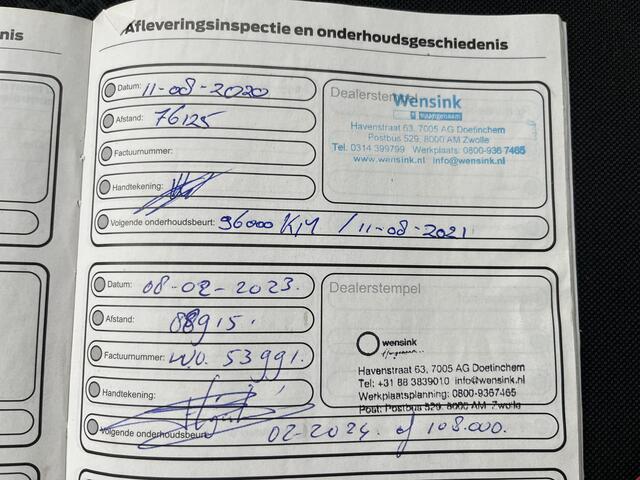 nis
Afleveringsinspectie en onderhoudsgeschiedenis
Datum: 11-08-2020
Afstand: 76125
Factuurnummer:
Handtekening:
Volgende onderhoudsbeurt: 96000 KM / 11-08-2021
Dealerstempel
Wensink
Havenstraat 63, 7005 AG Doetinchem
Postbus 529, 8000 AM Zwolle
Tel. 0314 399799 Werkplaats: 0800-936 7465
www.wensink.nl info@wensink.nl
Datum: 08-02-2023.
Afstand: 88915.
Factuurnummer: WO. 53991.
Handtekening:
Volgende onderhoudsbeurt: 02-2024. of 108.000.
Dealerstempel
wensink
Havenstraat 63, 7005 AG Doetinchem
Tel: +31 88 3839010 info@wensink.nl
Werkplaatsplanning: 0800-9367465
Post: Postbus 529, 8000 AM Zwolle